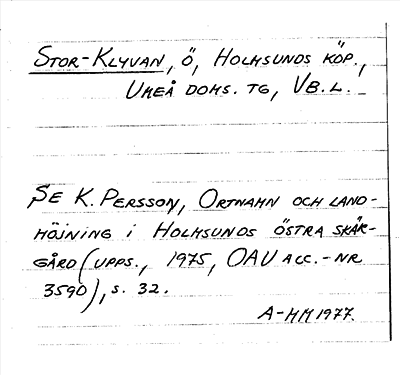 STOR-KLYVAN, Ö, HOLMSUNDS KÖP.,
UMEÅ DOMS. TG, VB. L.
SE K. PERSSON, ORTNAMN OCH LAND-
HÖJNING I HOLMSUNDS ÖSTRA SKÄR-
GÅRD (UPPS., 1975, OAU ACC.-NR
3590), S. 32.
A-HM 1977.